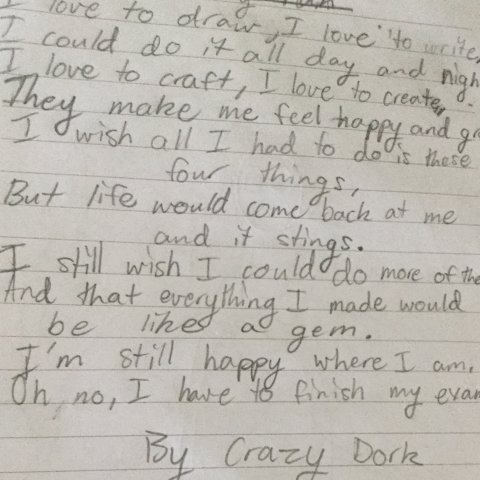 I love to draw, I love to write,
I could do it all day and nigh
I love to craft, I love to create,
They make me feel happy and gr
I wish all I had to do is these
four things,
But life would come back at me
and it stings.
I still wish I could do more of the
And that everything I made would
be like a gem.
I'm still happy where I am.
Oh no, I have to finish my exam
By Crazy Dork